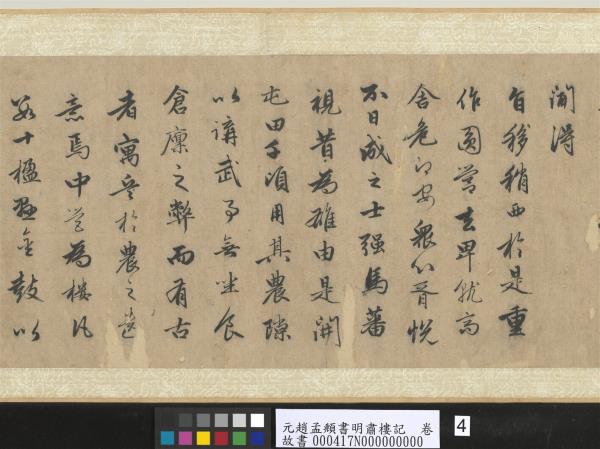 聞得
旨移稍西於是重
作圓營去卑就高
舍危即安眾心胥悅
不日成之士強馬蕃
視昔為雄由是開
屯田千頃用其農隙
以講武事無坐食
倉廩之弊而有古
者寓兵於農之遺
意焉中營為樓凡
十楹懸金鼓以
元趙孟頫書明肅樓記 卷
故書000417N000000000
4